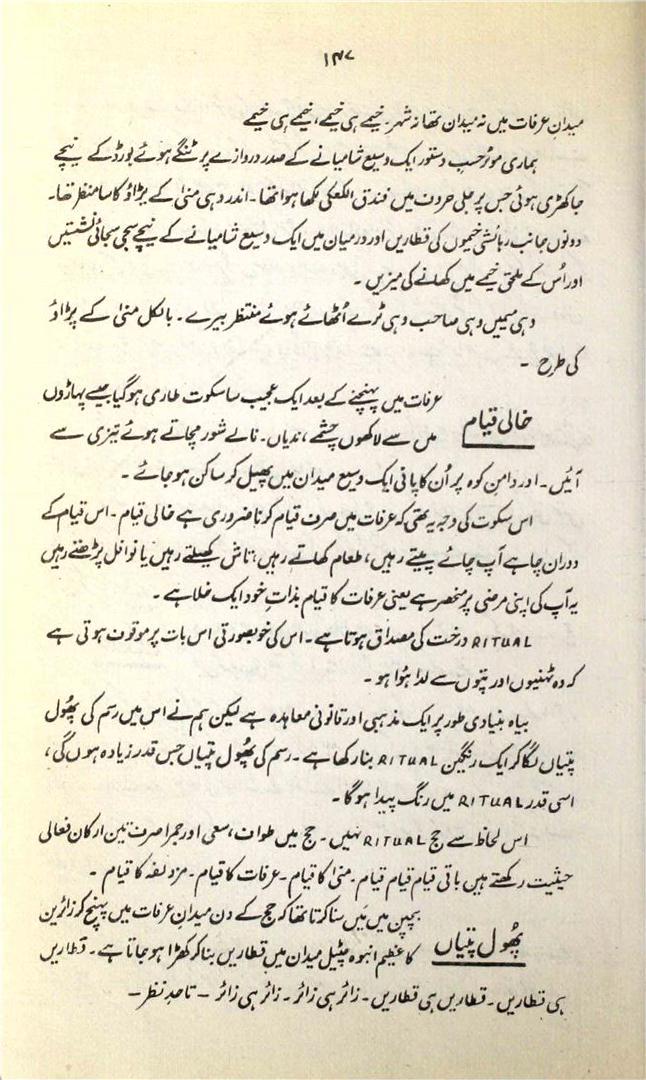 ۱۴۷
میدانِ عرفات میں نہ میدان تھا نہ شہر۔ خیمے ہی خیمے، خیمے ہی خیمے
ہماری موٹر حسبِ دستور ایک وسیع شامیانے کے صدر دروازے پر ٹنگے ہوئے بورڈ کے نیچے
جا کھڑی ہوئی جس پر جلی حروف میں فندق الکعکی لکھا ہوا تھا۔ اندر وہی منیٰ کے پڑاؤ کا سا منظر تھا۔
دونوں جانب رہائشی خیموں کی قطاریں اور درمیان میں ایک وسیع شامیانے کے نیچے سجی سجائی نشستیں
اور اُس کے ملحق خیمے میں کھانے کی میزیں۔
وہی میمیں وہی صاحب وہی ٹرے اُٹھائے ہوئے منتظر بیرے۔ بالکل منیٰ کے پڑاؤ
کی طرح ۔
عرفات میں پہنچنے کے بعد ایک عجیب سا سکوت طاری ہو گیا جیسے پہاڑوں
خالی قیام
میں سے لاکھوں چشمے، ندیاں۔ نالے شور مچاتے ہوئے تیزی سے
آئیں۔ اور دامنِ کوہ پر اُن کا پانی ایک وسیع میدان میں پھیل کر ساکن ہو جائے۔
اس سکوت کی وجہ یہ تھی کہ عرفات میں صرف قیام کرنا ضروری ہے خالی قیام۔ اس قیام کے
دوران چاہے آپ چائے پیتے رہیں، طعام کھاتے رہیں، تاش کھیلتے رہیں یا نوافل پڑھتے رہیں
یہ آپ کی اپنی مرضی پر منحصر ہے یعنی عرفات کا قیام بذاتِ خود ایک خلا ہے۔
RITUAL درخت کی مصداق ہوتا ہے۔ اس کی خوبصورتی اس بات پر موقوف ہوتی ہے
کہ وہ ٹہنیوں اور پتوں سے لدا ہُوا ہو۔
بیاہ بنیادی طور پر ایک مذہبی اور قانونی معاہدہ ہے لیکن ہم نے اس میں رسم کی پھُول
پتیاں لگا کر ایک رنگین RITUAL بنا رکھا ہے۔ رسم کی پھُول پتیاں جس قدر زیادہ ہوں گی،
اسی قدر RITUAL میں رنگ پیدا ہو گا۔
اس لحاظ سے حج RITUAL نہیں۔ حج میں طواف، سعی اور جمرا صرف تین ارکان فعالی
حیثیت رکھتے ہیں باقی قیام قیام قیام۔ منیٰ کا قیام۔ عرفات کا قیام۔ مزدلفہ کا قیام۔
بچپن میں مَیں سنا کرتا تھا کہ حج کے دن میدانِ عرفات میں پہنچ کر زائرین
پھُول پتیاں
کا عظیم انبوہ چٹیل میدان میں قطاریں بنا کر کھڑا ہو جاتا ہے۔ قطاریں
ہی قطاریں۔ قطاریں ہی قطاریں۔ زائر ہی زائر۔ زائر ہی زائر ۔ تا حدِ نظر۔